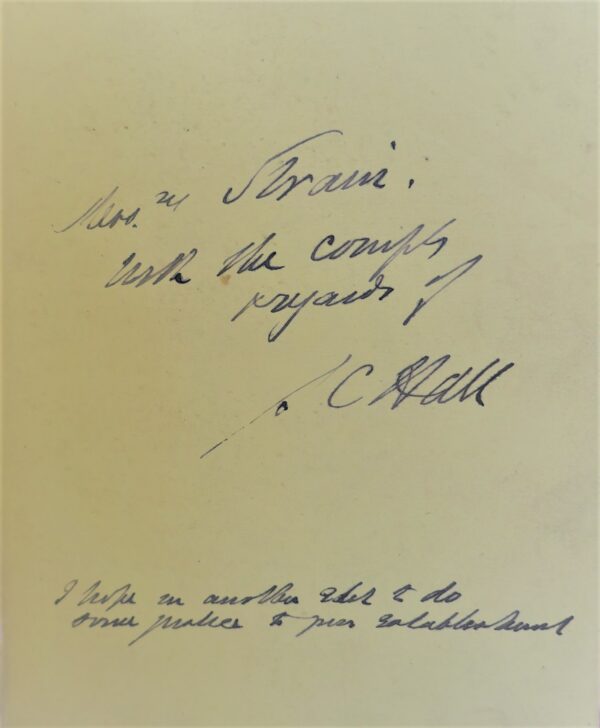 Mess.rs Strain.
with the compts
regards of
S C Hall
I hope in another Edit to do
some justice to your establishment